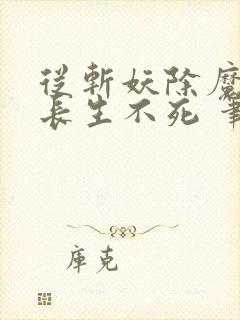 從斬妖除魔
長生不死 筆
庫克